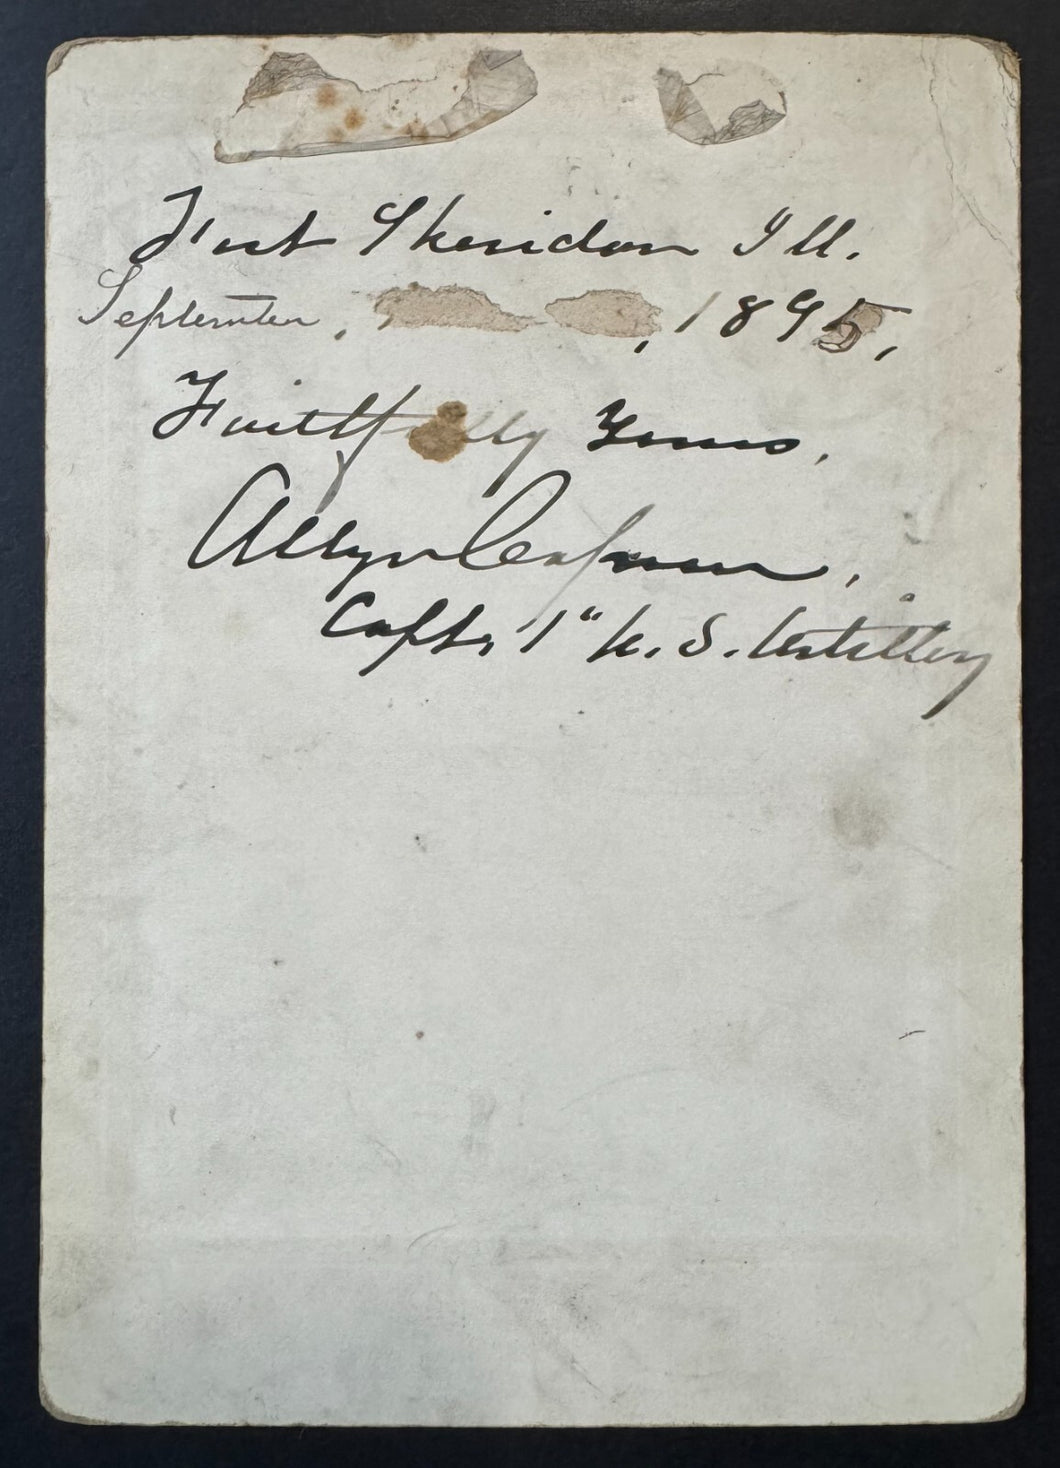 Fort Sheridan Ill.
September, , 1895,
Faithfully Yours,
Allyn Capron,
Capt, 1" U. S. Artillery